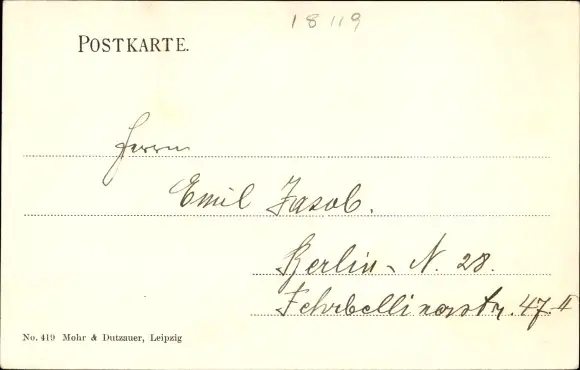 18119
POSTKARTE.
Herrn
Emil Jacob.
Berlin - N. 28.
Fehrbellinerstr. 47 II
No. 419 Mohr & Dutzauer, Leipzig